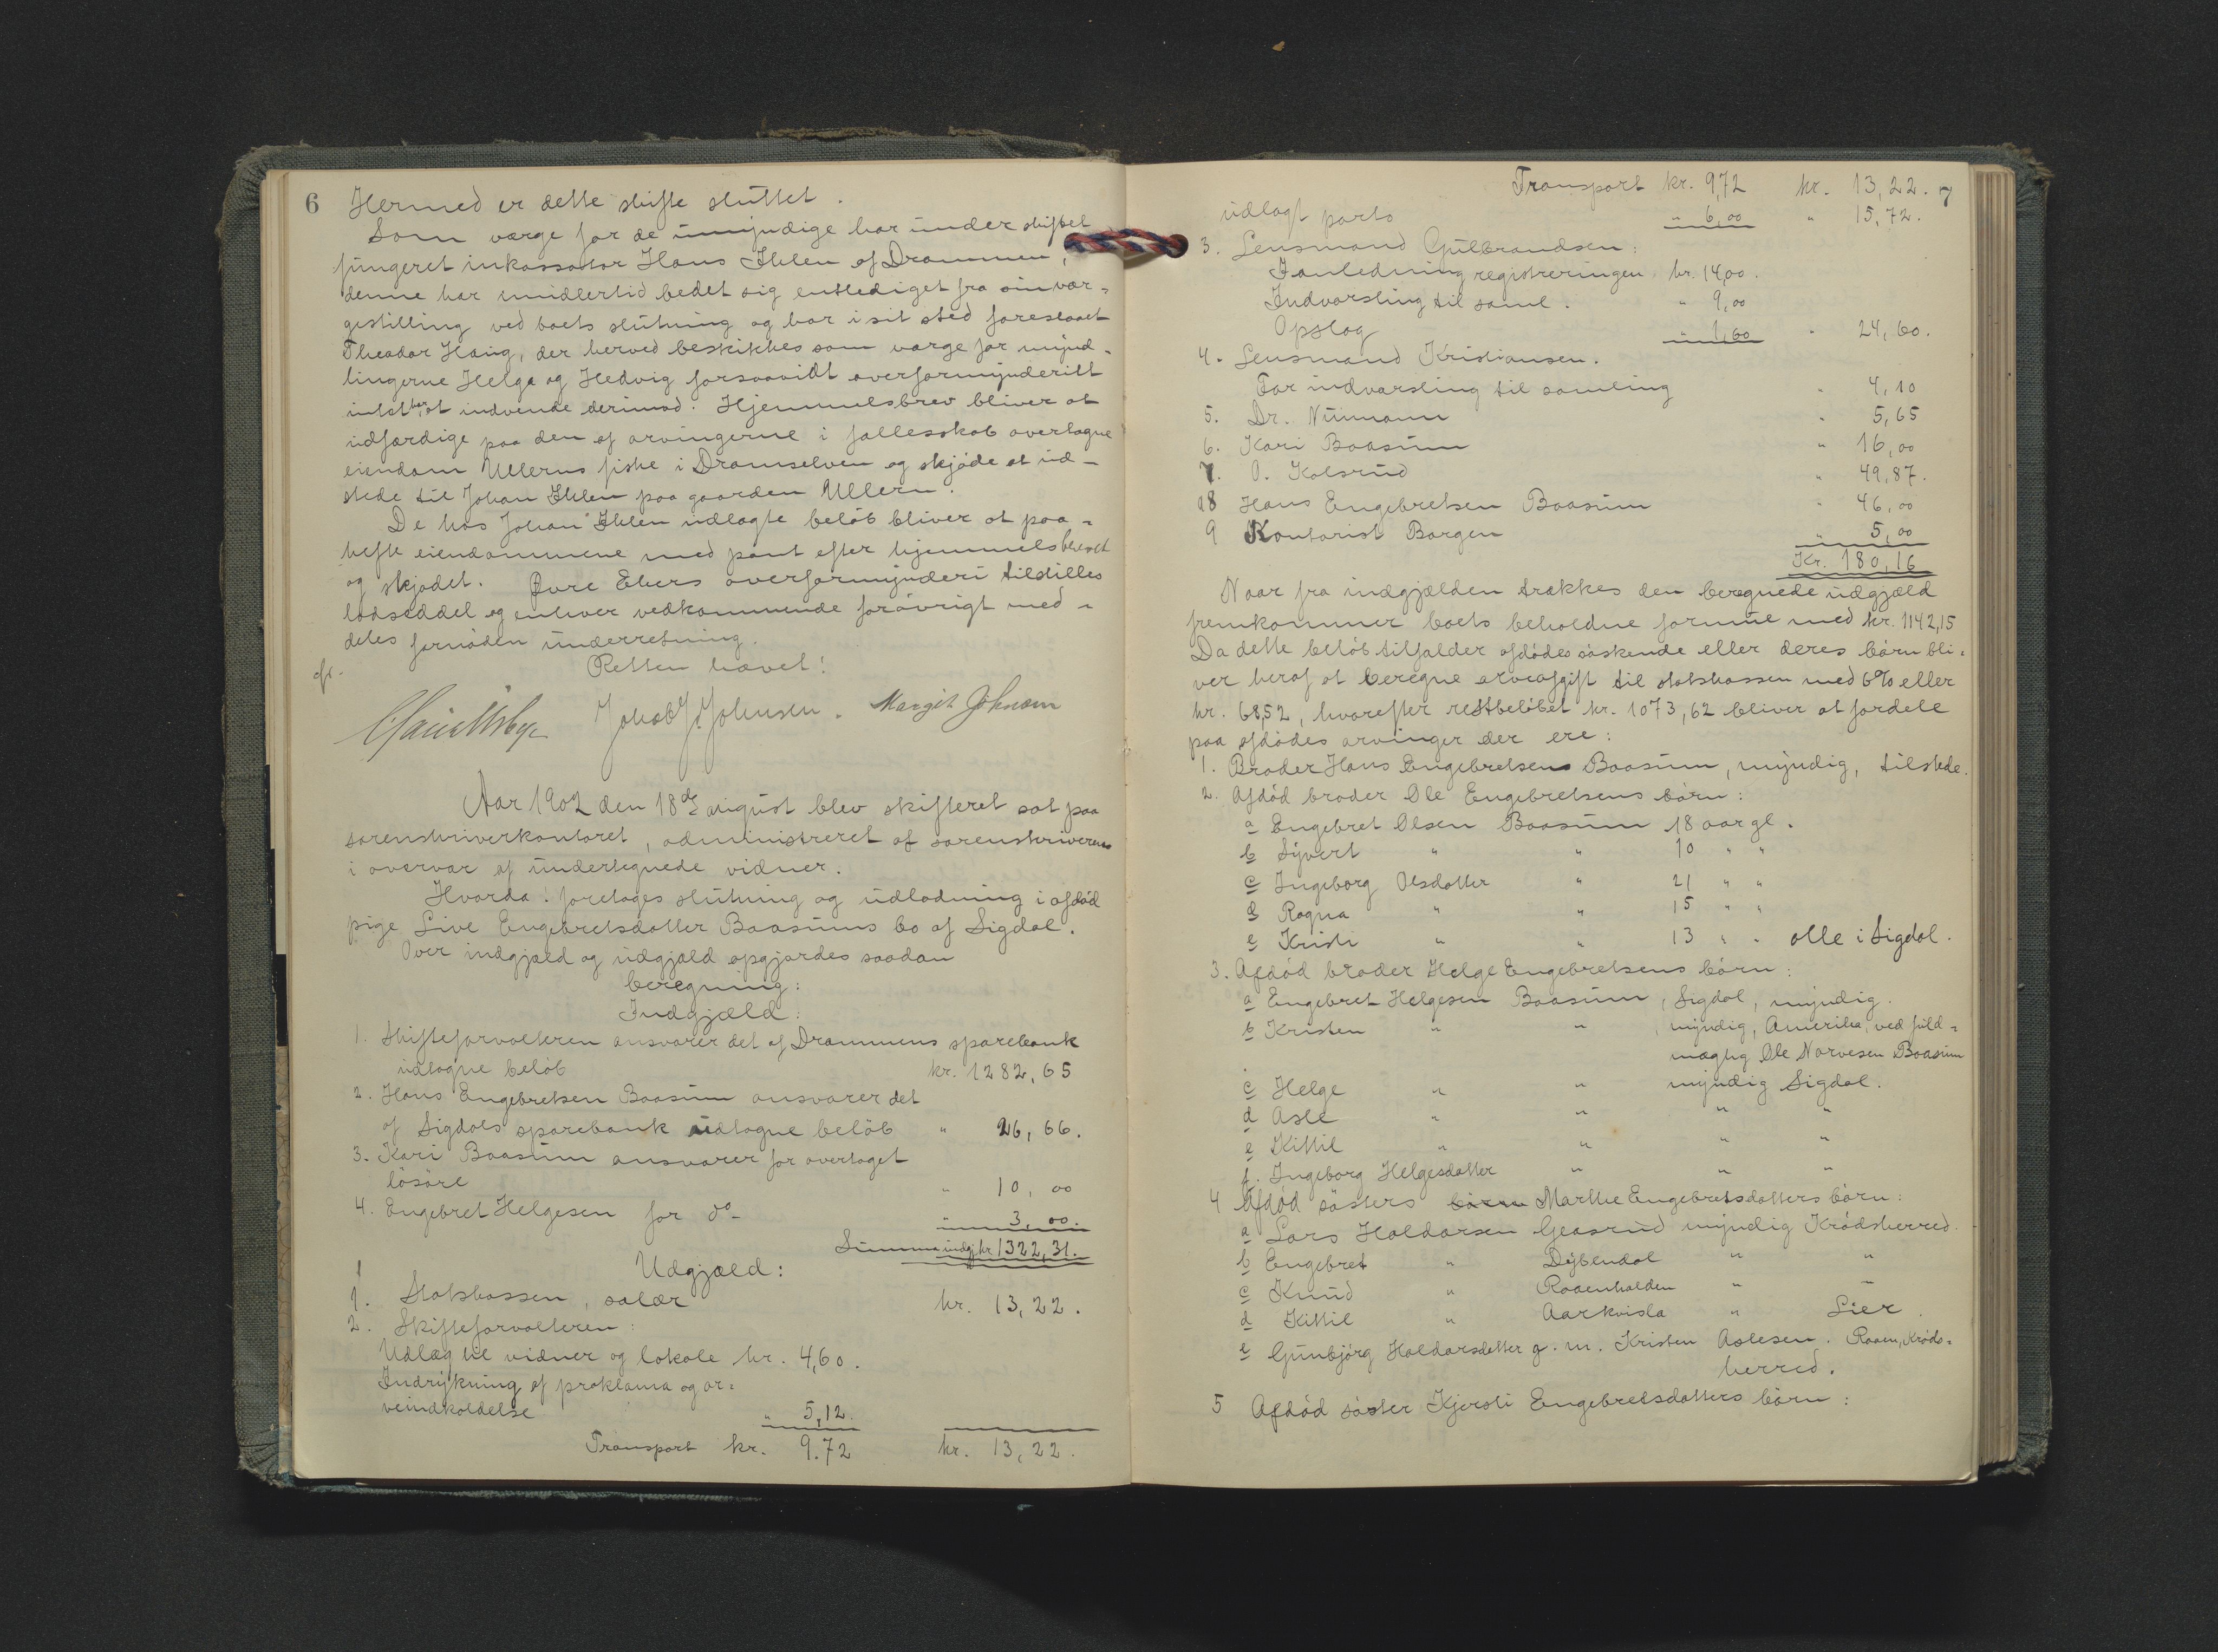 6
Hermed er dette skifte sluttet.
Som værge for de umyndige har under skiftet
fungeret inkassator Hans Ihlen af Drammen,
denne har imidlertid bedet sig entlediget fra sin vær-
gestilling ved boets slutning og har i sit sted foreslaaet
Theodor Haug, der herved beskikkes som værge for mynd-
lingerne Helga og Hedvig forsaavidt overformynderiet
intet har at indvende derimod. Hjemmelsbrev bliver at
udfærdige paa den af arvingerne i fællesskab overtagne
eiendom Ullerns fiske i Dramselven og skjøde at ud-
stede til Johan Ihlen paa gaarden Ullern.
De hos Johan Ihlen udlagte beløb bliver at paa-
hefte eiendommene med pant efter hjemmelsbrevet
og skjødet. Øvre Ekers overformynderi tilstilles
lodseddel og enhver vedkommende forøvrigt med-
deles fornøden underretning.
Retten hævet!
Jakob J. Johnsen. Margit Johnsen
Aar 1902 den 18de august blev skifteret sat paa
sorenskriverkontoret, administreret af sorenskriveren
i overvær af undertegnede vidner.
Hvorda: foretoges slutning og udlodning i afdød
pige Live Engebretsdatter Baasums bo af Sigdal.
Over indgjæld og udgjæld opgjordes saadan
beregning:
Indgjæld:
1. Skifteforvalteren ansvarer det af Drammens sparebank
udtagne beløb kr. 1282,65
2. Hans Engebretsen Baasum ansvarer det
af Sigdals sparebank udtagne beløb " 26,66.
3. Kari Baasum ansvarer for overtaget
løsøre " 10,00
4. Engebret Helgesen for do " 3,00.
Summa indgj kr 1322,31.
Udgjæld:
1. Statskassen, salær kr. 13,22.
2. Skifteforvalteren:
Udlæg til vidner og lokale kr. 4,60.
Indrykning af proklama og ar-
veindkaldelse " 5,12.
Transport kr. 9.72 kr. 13,22.
7
Transport kr. 9,72 kr. 13,22.
udlagt porto " 6,00 " 15,72.
3. Lensmand Gulbrandsen:
I anledning registreringen kr. 14,00.
Indvarsling til saml. " 9,00
Opslag " 1,60 " 24,60.
4. Lensmand Kristiansen.
For indvarsling til samling " 4,10
5. Dr. Numann " 5,65
6. Kari Baasum " 16,00
7. O. Kolsrud " 49,87.
8 Hans Engebretsen Baasum " 46,00
9 Kontorist Borgen " 5,00
Kr. 180,16
Naar fra indgjælden trækkes den beregnede udgjæld
fremkommer boets beholdne formue med kr. 1142,15
Da dette beløb tilfalder afdødes søskende eller deres børn bli-
ver heraf at beregne arveafgift til statskassen med 6% eller
kr. 68,52, hvorefter restbeløbet kr. 1073,62 bliver at fordele
paa afdødes arvinger der ere:
1. Broder Hans Engebretsens Baasum, myndig, tilstede.
2. Afdød broder Ole Engebretsens børn:
a Engebret Olsen Baasum 18 aar gl.
b Syvert " " 10 " "
c Ingeborg Olsdatter " 21 " "
d Ragna " " 15 " "
e Kristi " " 13 " " alle i Sigdal.
3. Afdød broder Helge Engebretsens børn:
a Engebret Helgesen Baasum, Sigdal, myndig.
b Kristen " " , myndig, Amerika, ved fuld-
mægtig Ole Narvesen Baasum
c Helge " " myndig Sigdal.
d Asle " " " "
e Kittil " " " "
f. Ingeborg Helgesdatter " " "
4 Afdød søsters børn Marthe Engebretsdatters børn:
a Lars Haldorsen Geasrud myndig Krødsherred.
b Engebret " Dybendal " "
c Knud " Raaenhalden " "
d Kittil " Aarkvisla " Lier.
e Gunbjørg Haldorsdatter g. m. Kristen Aslesen. Raaen, Krøds-
herred.
5 Afdød søster Kjersti Engebretsdatters børn: